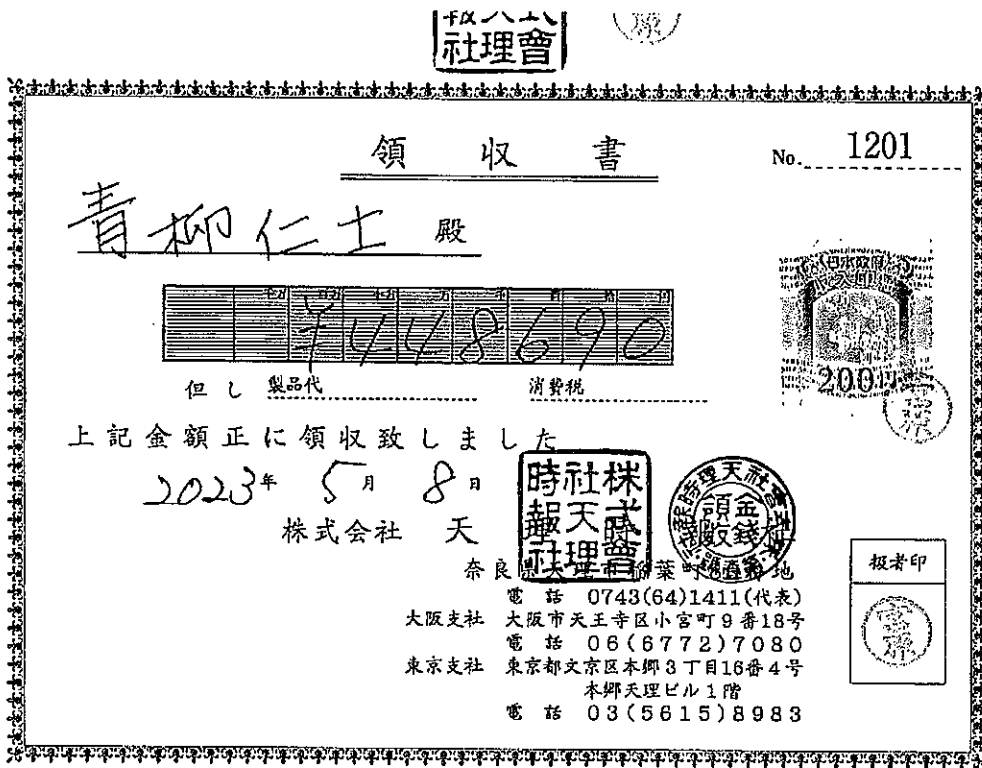 社理會
領 収 書
No. 1201
青柳仁士 殿
千万 百万 十万 万 千 百 拾 円
¥448690
但し 製品代 消費税
日本政府
収入印紙
200円
上記金額正に領収致しました
2023年 5月 8日
株式会社 天
株式會
社天理
時報社
金錢
領收
奈良県天理市稲葉町
電話 0743(64)1411(代表)
大阪支社 大阪市天王寺区小宮町9番18号
電話 06(6772)7080
東京支社 東京都文京区本郷3丁目16番4号
本郷天理ビル1階
電話 03(5615)8983
扱者印